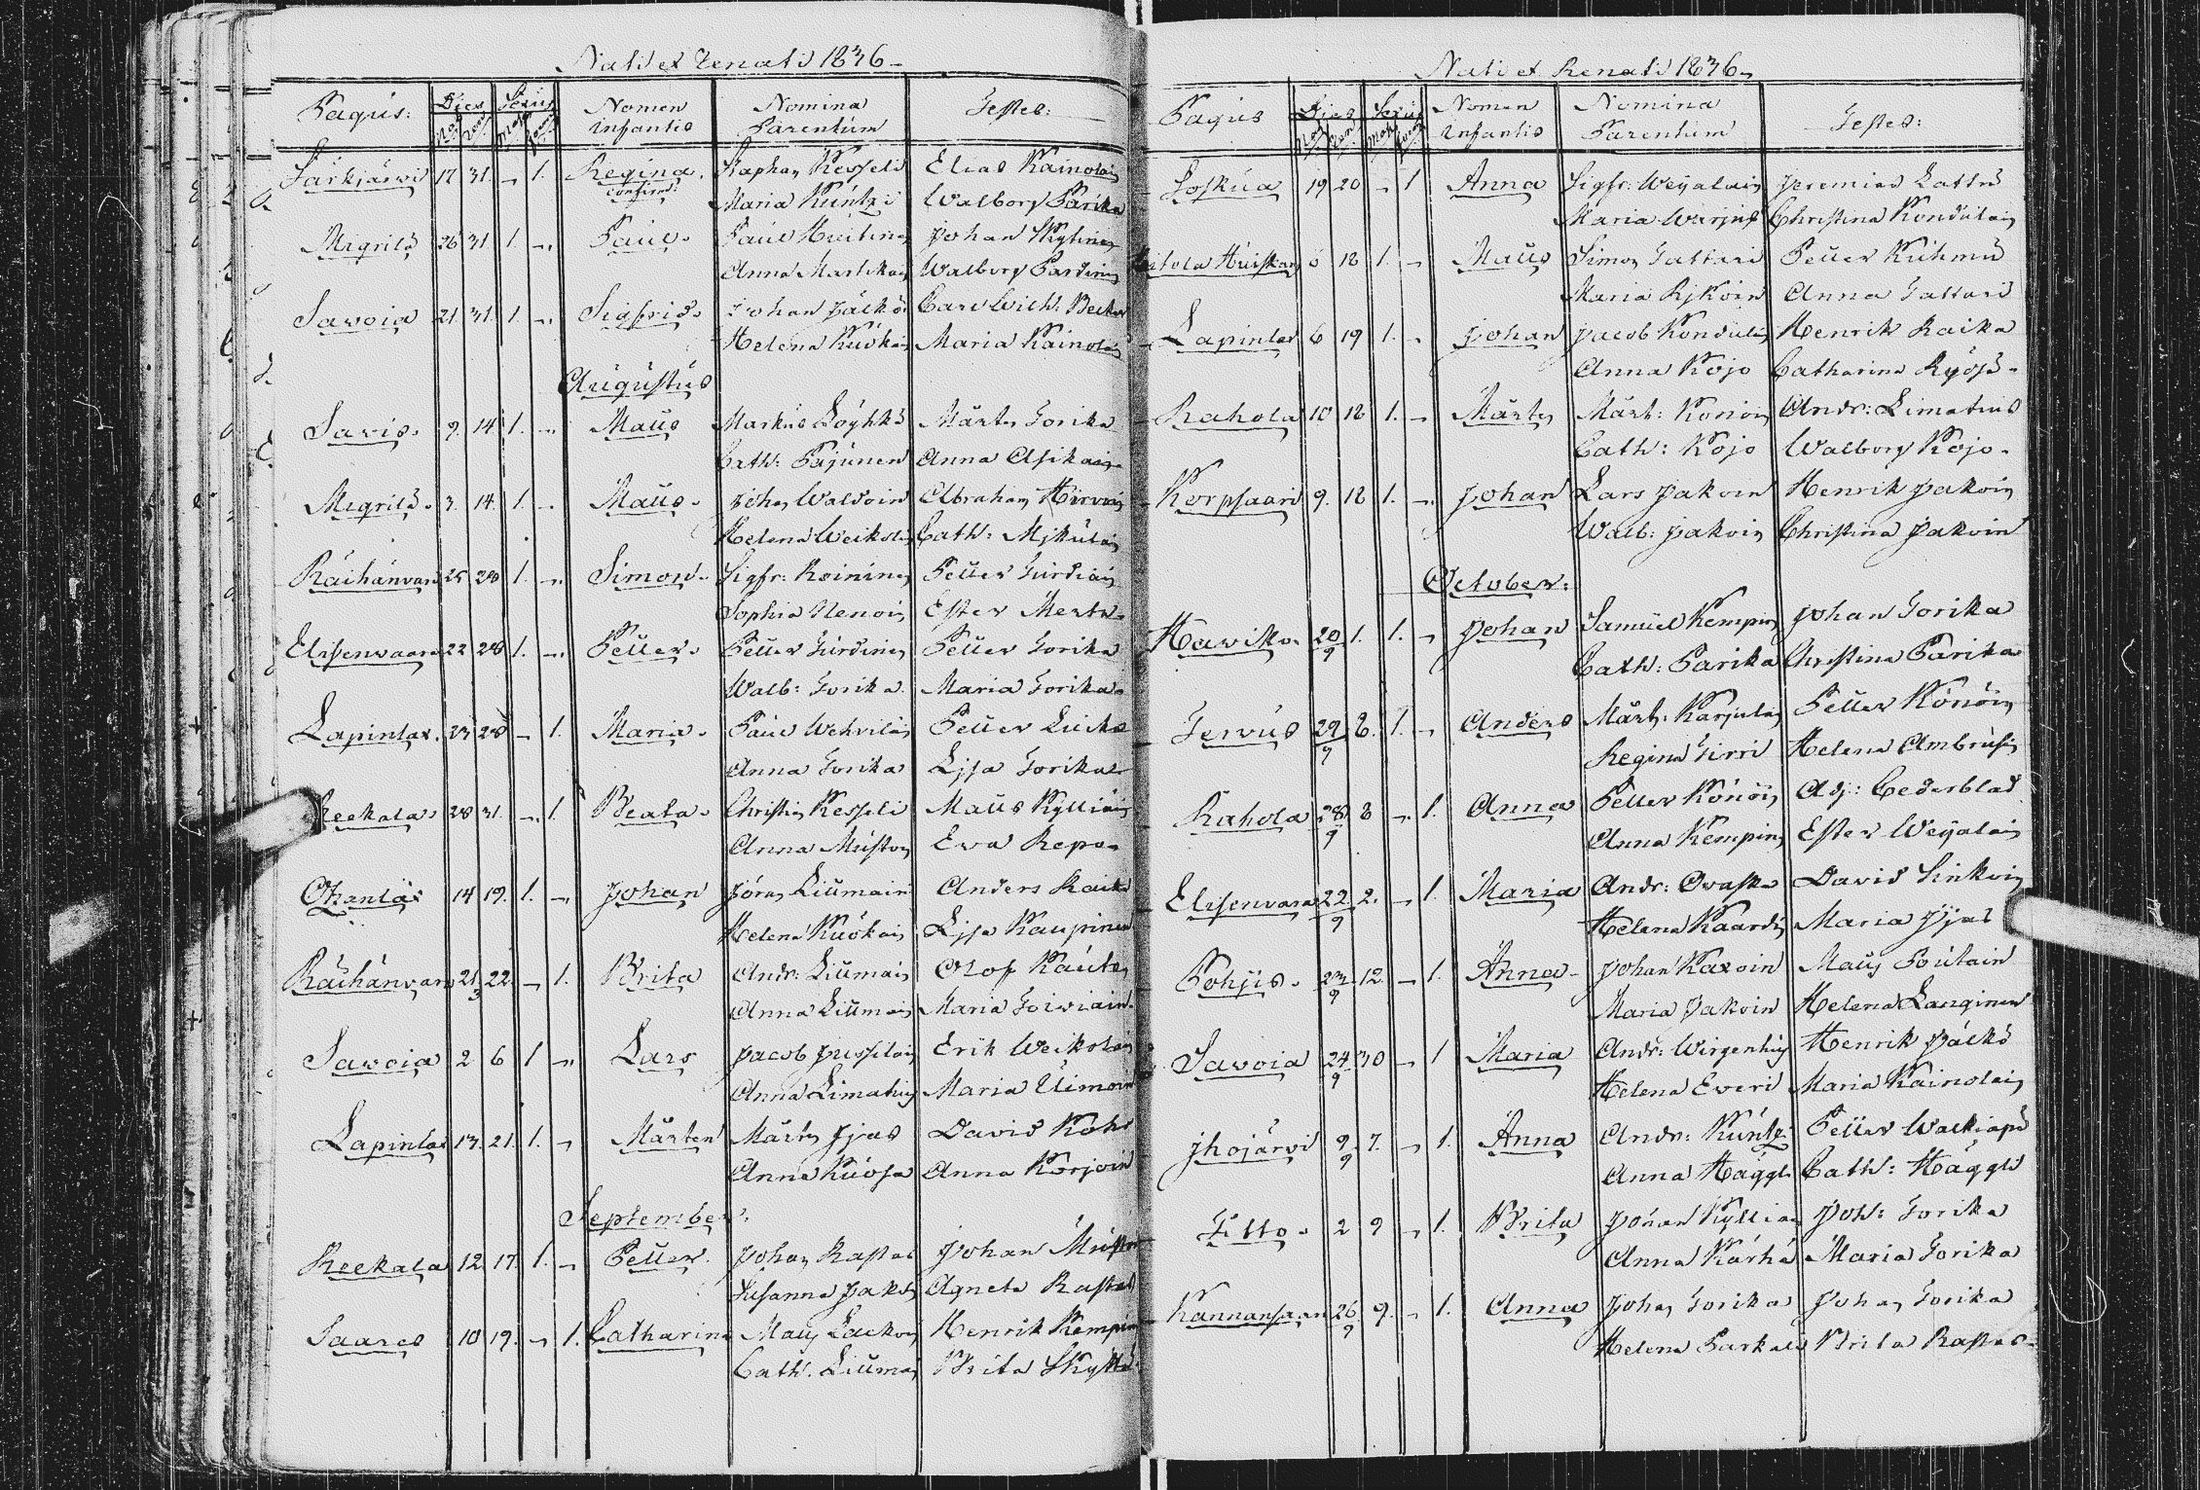 Nati et Renati 1836
Pagus: Dies Sexus Nomen Infantis Nomina Parentum Testes:
Nat. Ren. Mask. Foem.
Särkjärwi 17 31 — 1. Regina. Staphan Kesseli Elias Kainolain
confirm: Maria Küntzi Walborg Parika
Mcgrilä 26 31 1. — Paul. Paul Huitinen Johan Kytinen
Anna Martikain Walborg Pardinen
Savoia 21 31. 1. — Sigfrid. Johan Jälkö Carl Wilh: Becker
Helena Kuokain Maria Kainolain
Augustus
Saris. 9. 14 1. — Maus Markus Löyhkö Mårten Torika
Cath: Pajunen Anna Asikain
Mcgrilä. 3. 14. 1. — Maus. Johan Waldoin Abraham Hirvoin
Helena Weikolain Cath: Mikulain
Räihänvara 25 28 1. — Simon. Sigfr: Roininen Petter Turdiain
Sophia Nenoin Ester Merta
Elisenvaara 22 28 1. — Petter. Petter Turdinen Petter Torika
Walb: Torika Maria Torika
Lapinlax. 23 28 — 1. Maria. Paul Wehviläin Petter Luika
Anna Torika Lisa Torika
Reekala. 28 31. — 1. Beata. Christian Kesseli Maus Kylliäin
Anna Muston Eva Repo
Otzanlax 14 19. 1. — Johan Jöran Liumain Anders Raika
Helena Kuokain Lisa Kaupinen
Räihänvara 21/3 22. — 1. Brita Andr: Liumain Olof Kauten
Anna Liumain Maria Toiviain
Savoia 2 6 1 — Lars Jacob Jussilain Erik Weikolain
Anna Limatius Maria Uimoin
Lapinlax 13. 21. 1. — Mårten Mårten Ijas David Koho
Anna Kuosa Anna Korjoin
September.
Reekala 12. 17. 1. — Petter. Johan Rastas Johan Muston
Susanna Jakoin Agneta Rastas
Saares 10 19. — 1. Catharina Maus Lackon Henrik Kempin
Cath: Liumain Brita Skyttä
Nati et Renati 1836.
Pagus Dies Sexus Nomen Infantis Nomina Parentum Testes:
Nat. Ren. Mask. Foem.
Soskua 19 20 — 1 Anna Sigfr: Weijalain Jeremias Lattu
Maria Warjus Christina Kondulain
Hiitola Huiskan 6 18 1. — Maus Simon Tattari Petter Kuhmu
Maria Rjköin Anna Tattari
Lapinlax 6 19 1. — Johan Jacob Kondulain Henrik Raika
Anna Kojo Catharina Ryösä
Rahola 10 18 1. — Mårten Mårt: Konoin Andr: Limatius
Cath: Kojo Walborg Kojo.
Korpsaari 9. 18 1. — Johan Lars Jakoin Henrik Jakoin
Walb: Jakoin Christina Jakoin
October:
Haviko. 20/9 1. 1. — Johan Samuel Kempin Johan Torika
Cath: Parika Christina Parika
Tervus 29/9 2. 1. — Anders Mårt: Karjulain Petter Könöin
Regina Tirri Helena Ambrusin
Rahola 28/9 3 — 1. Anna Petter Könöin Adj: Cederblad
Anna Kempin Ester Weijalain
Elisenvara 22/9 2. — 1. Maria Andr: Ovaska David Sinkoin
Helena Kaardin Maria Ijas
Pohjis. 23/9 12. — 1. Anna Johan Kaxoin Maus Poutain
Maria Jakoin Helena Langinen
Savoia 24/9 30 — 1 Maria Andr: Wirgentius Henrik Jälkö
Helena Everi Maria Kainolain
Ihojärvi 9/9 7. — 1. Anna Andr: Küntzi Petter Walkiapä
Anna Häggli Cath: Häggli
Tito. 2 9 — 1. Brita Johan Kylliain Joh: Torika
Anna Kärhä Maria Torika
Kannansaari 26/9 9. — 1. Anna Johan Torika Johan Torika
Helena Purkala Brita Rastas